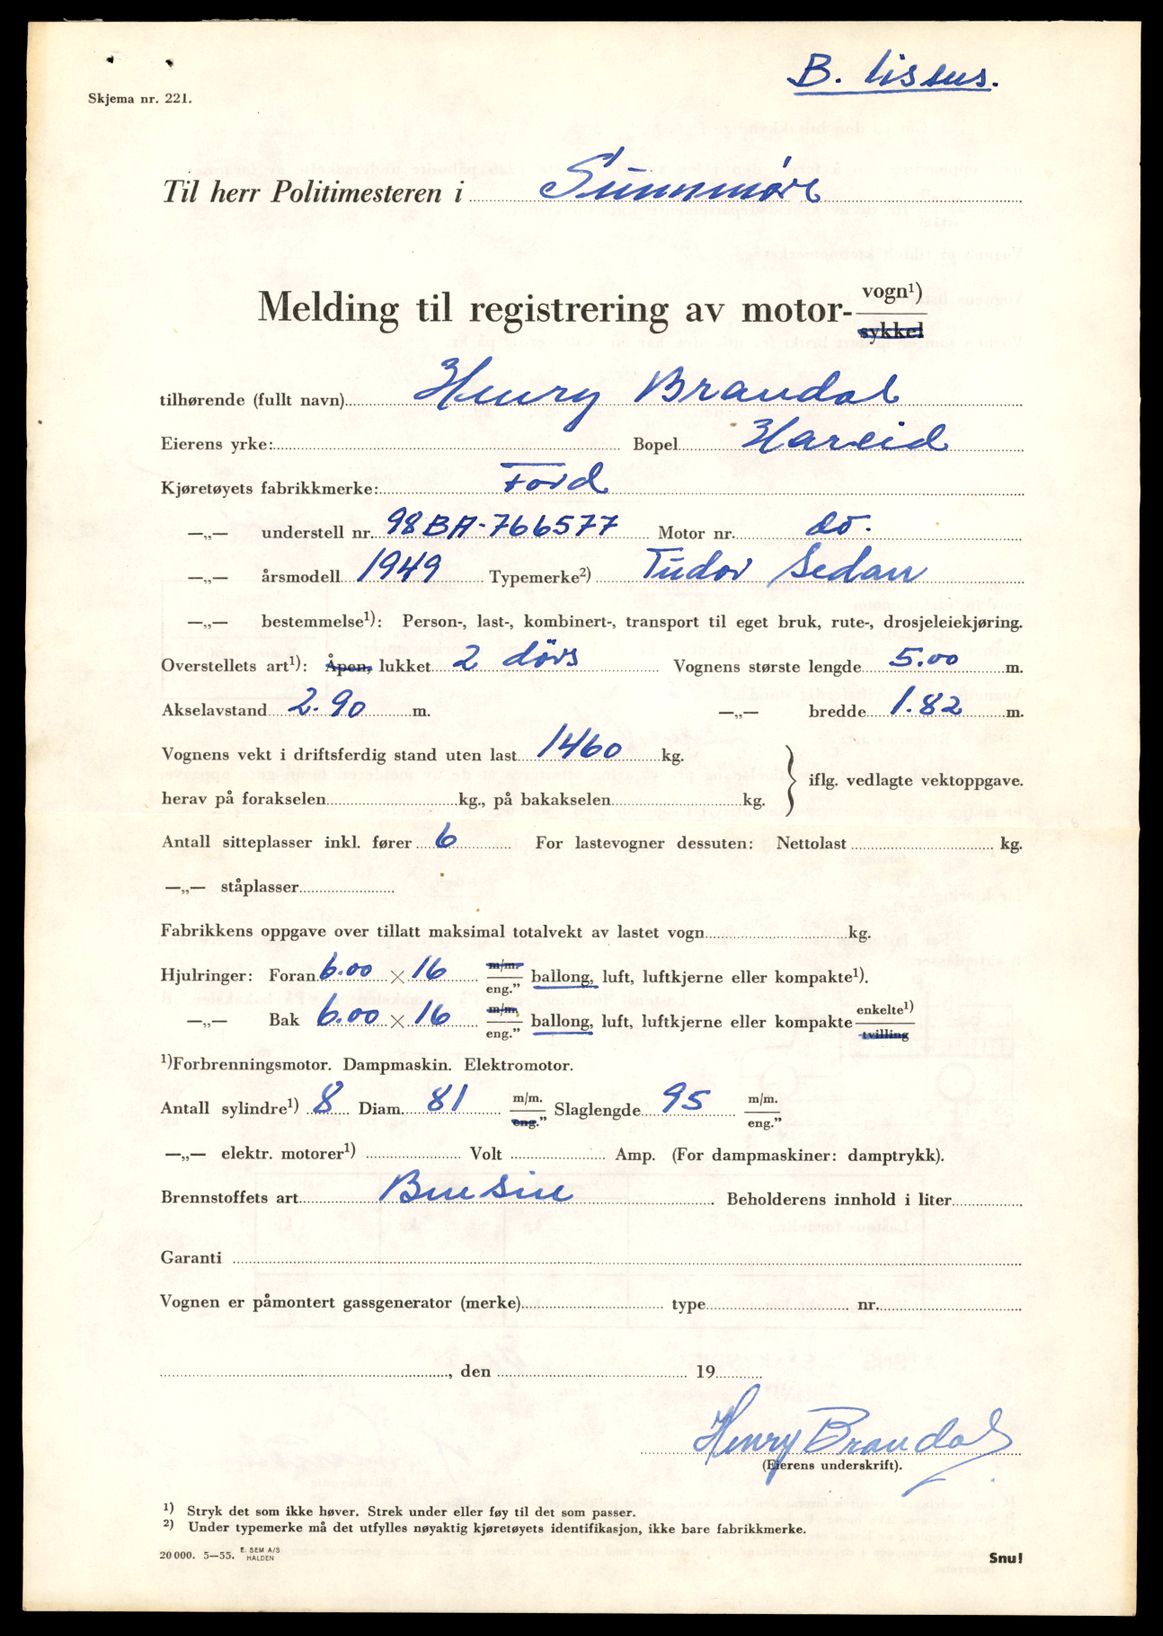 B. lissens.
Skjema nr. 221.
Til herr Politimesteren i Sunnmøre
Melding til registrering av motor- vogn¹)
sykkel
tilhørende (fullt navn) Henry Brandal
Eierens yrke: Bopel Hareid
Kjøretøyets fabrikkmerke: Ford
—„— understell nr. 98BA-766577 Motor nr. do.
—„— årsmodell 1949 Typemerke²) Tudor Sedan
—„— bestemmelse¹): Person-, last-, kombinert-, transport til eget bruk, rute-, drosjeleiekjøring.
Overstellets art¹): Åpen, lukket 2 dørs Vognens største lengde 5.00 m.
Akselavstand 2.90 m. —„— bredde 1.82 m.
Vognens vekt i driftsferdig stand uten last 1460 kg.
iflg. vedlagte vektoppgave.
herav på forakselen kg., på bakakselen kg.
Antall sitteplasser inkl. fører 6 For lastevogner dessuten: Nettolast kg.
—„— ståplasser
Fabrikkens oppgave over tillatt maksimal totalvekt av lastet vogn kg.
Hjulringer: Foran 6.00 × 16 m/m. eng.” ballong, luft, luftkjerne eller kompakte¹).
—„— Bak 6.00 × 16 m/m. eng.” ballong, luft, luftkjerne eller kompakte enkelte¹) tvilling
¹)Forbrenningsmotor. Dampmaskin. Elektromotor.
Antall sylindre¹) 8 Diam. 81 m/m. eng.” Slaglengde 95 m/m. eng.”
—„— elektr. motorer¹) Volt Amp. (For dampmaskiner: damptrykk).
Brennstoffets art Bensin Beholderens innhold i liter
Garanti
Vognen er påmontert gassgenerator (merke) type nr.
, den 19
Henry Brandal
(Eierens underskrift).
¹) Stryk det som ikke høver. Strek under eller føy til det som passer.
²) Under typemerke må det utfylles nøyaktig kjøretøyets identifikasjon, ikke bare fabrikkmerke.
20 000. 5—55. E. SEM A/S HALDEN
Snu!